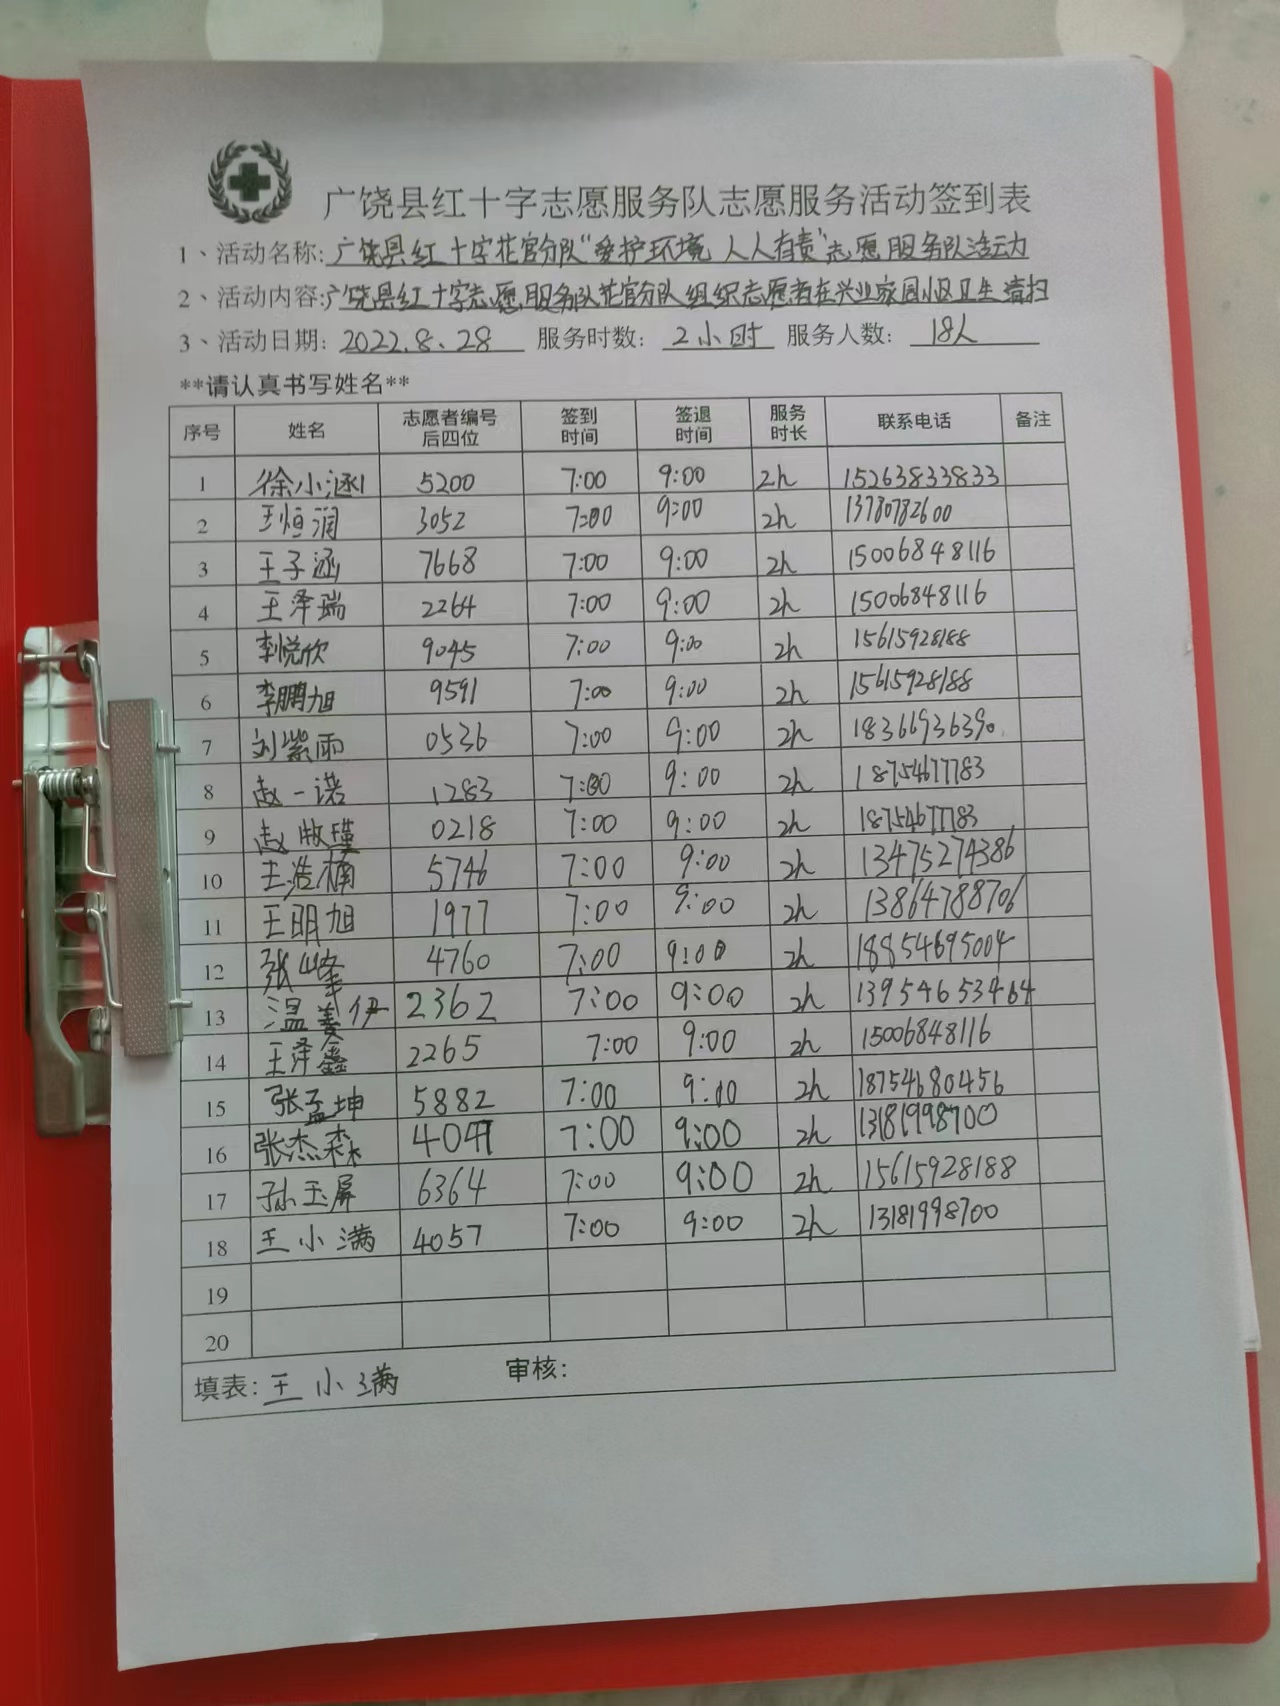 广饶县红十字志愿服务队志愿服务活动签到表
1、活动名称:广饶县红十字花官分队“爱护环境 人人有责”志愿服务队活动
2、活动内容:广饶县红十字志愿服务队花官分队组织志愿者在兴业家园小区卫生清扫
3、活动日期: 2022.8.28 服务时数: 2小时 服务人数: 18人
**请认真书写姓名**
序号 姓名 志愿者编号后四位 签到时间 签退时间 服务时长 联系电话 备注
1 徐小涵 5200 7:00 9:00 2h 15263833833
2 王恒润 3052 7:00 9:00 2h 13780782600
3 王子涵 7668 7:00 9:00 2h 15006848116
4 王泽瑞 2264 7:00 9:00 2h 15006848116
5 李悦欣 9045 7:00 9:00 2h 15615928188
6 李鹏旭 9591 7:00 9:00 2h 15615928188
7 刘紫雨 0536 7:00 9:00 2h 18366936390
8 赵一诺 1283 7:00 9:00 2h 18754677783
9 赵牧瑾 0218 7:00 9:00 2h 18754677783
10 王浩楠 5746 7:00 9:00 2h 13475274386
11 王明旭 1977 7:00 9:00 2h 13864788706
12 张峰 4760 7:00 9:00 2h 18854695004
13 温姜伊 2362 7:00 9:00 2h 13954653464
14 王泽鑫 2265 7:00 9:00 2h 15006848116
15 张孟坤 5882 7:00 9:00 2h 18754680456
16 张杰森 7:00 9:00 2h 13181998700
17 孙玉屏 6364 7:00 9:00 2h 15615928188
18 王小满 4057 7:00 9:00 2h 13181998700
19
20
填表:王小满 审核: